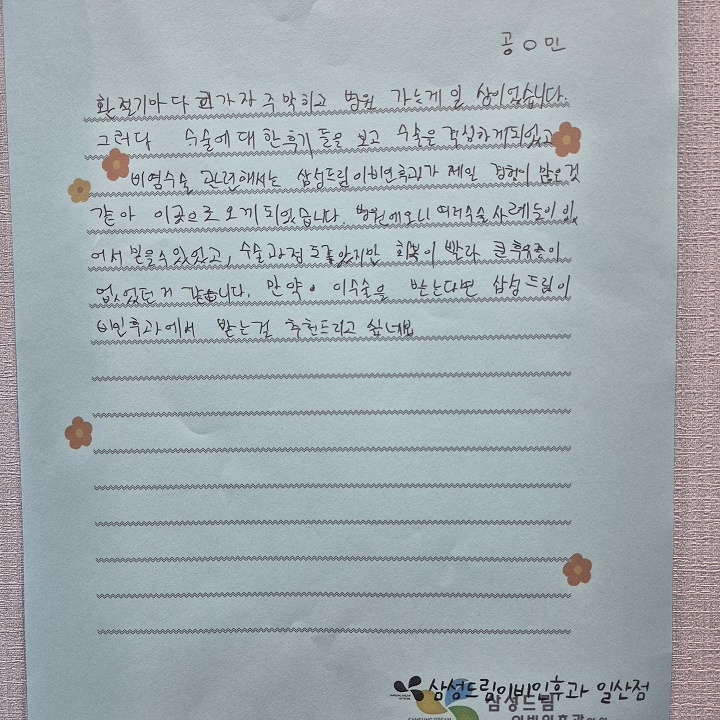 공ㅇ민
환절기마다 코가 자주 막히고 병원 가는게 일상이었습니다.
그러다 수술에 대한 후기들을 보고 수술을 결심하게되었고
비염수술 관련해서는 삼성드림이비인후과가 제일 경험이 많은것
같아 이곳으로 오게되었습니다. 병원에오니 여러수술사례들이 있
어서 믿을수있었고, 수술과정도 좋았지만 회복이 빨라 큰후유증이
없었던거 같습니다. 만약 이수술을 받는다면 삼성드림이
비인후과에서 받는걸 추천드리고 싶네요
삼성드림이비인후과 일산점
삼성드림
이비인후과의원
SAMSUNG DREAM